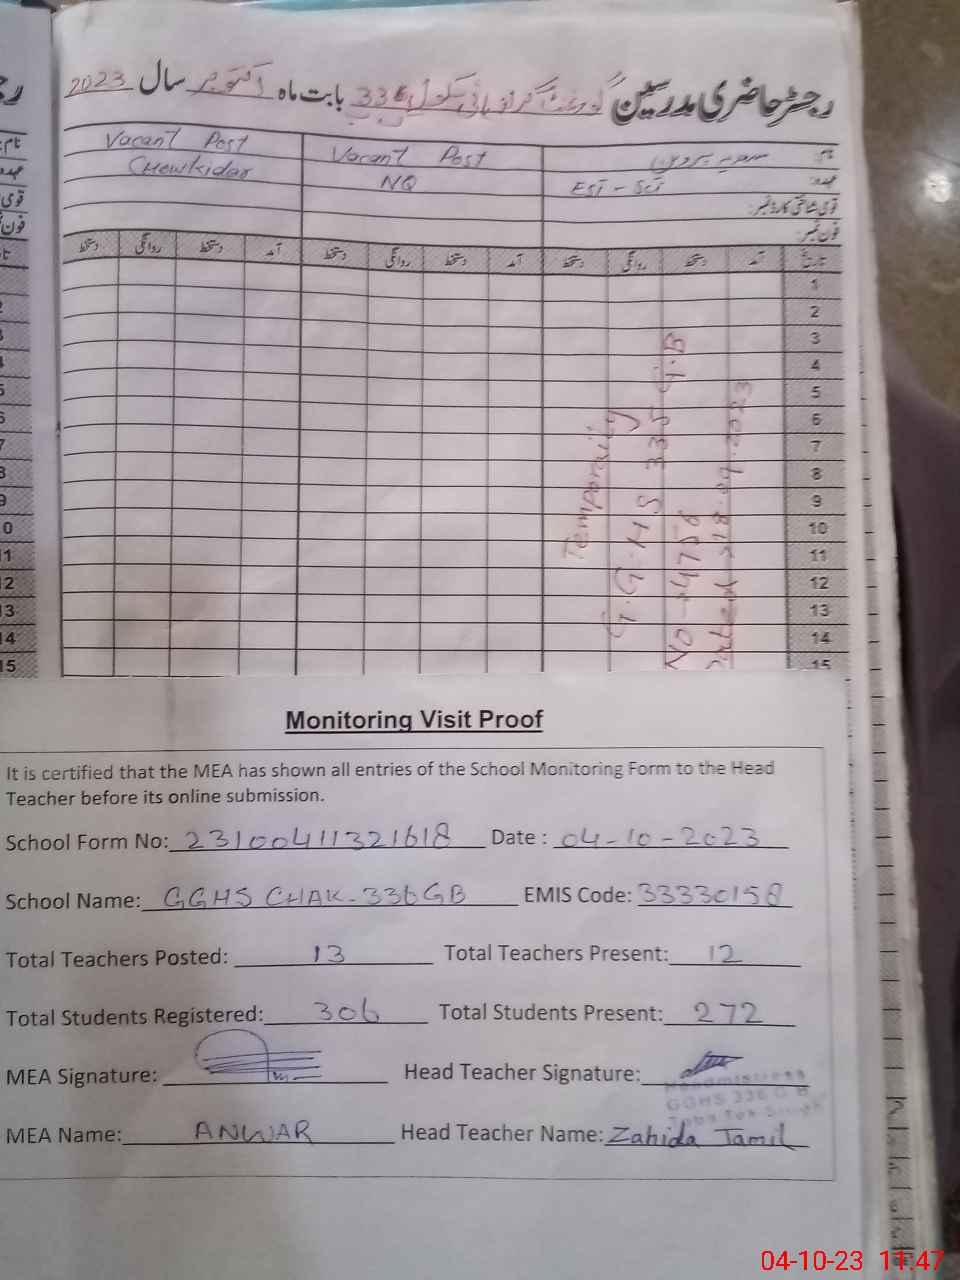 رجسٹر حاضری مدرسین گورنمنٹ گرلز ہائی سکول 336 گ ب بابت ماہ اکتوبر سال 2023
نام
عہدہ:
قومی شناختی کارڈ نمبر:
فون نمبر:
پروین
EST - Sci
Vacant Post
NQ
Vacant Post
Chowkidar
تاریخ آمد دستخط روانگی دستخط آمد دستخط روانگی دستخط آمد دستخط روانگی دستخط
1
2
3
4
5
6
7
8
9
10
11
12
13
14
15
Temporaily
G.G.H.S 335 G.B
No → 4756
Dated → 18.09.2023
Monitoring Visit Proof
It is certified that the MEA has shown all entries of the School Monitoring Form to the Head
Teacher before its online submission.
School Form No: 23100411321618 Date : 04-10-2023
School Name: GGHS CHAK-336GB EMIS Code: 33330158
Total Teachers Posted: 13 Total Teachers Present: 12
Total Students Registered: 306 Total Students Present: 272
MEA Signature: Head Teacher Signature:
Headmistress
GGHS 336 G B
Toba Tek Singh
MEA Name: ANWAR Head Teacher Name: Zahida Jamil
04-10-23 11:47